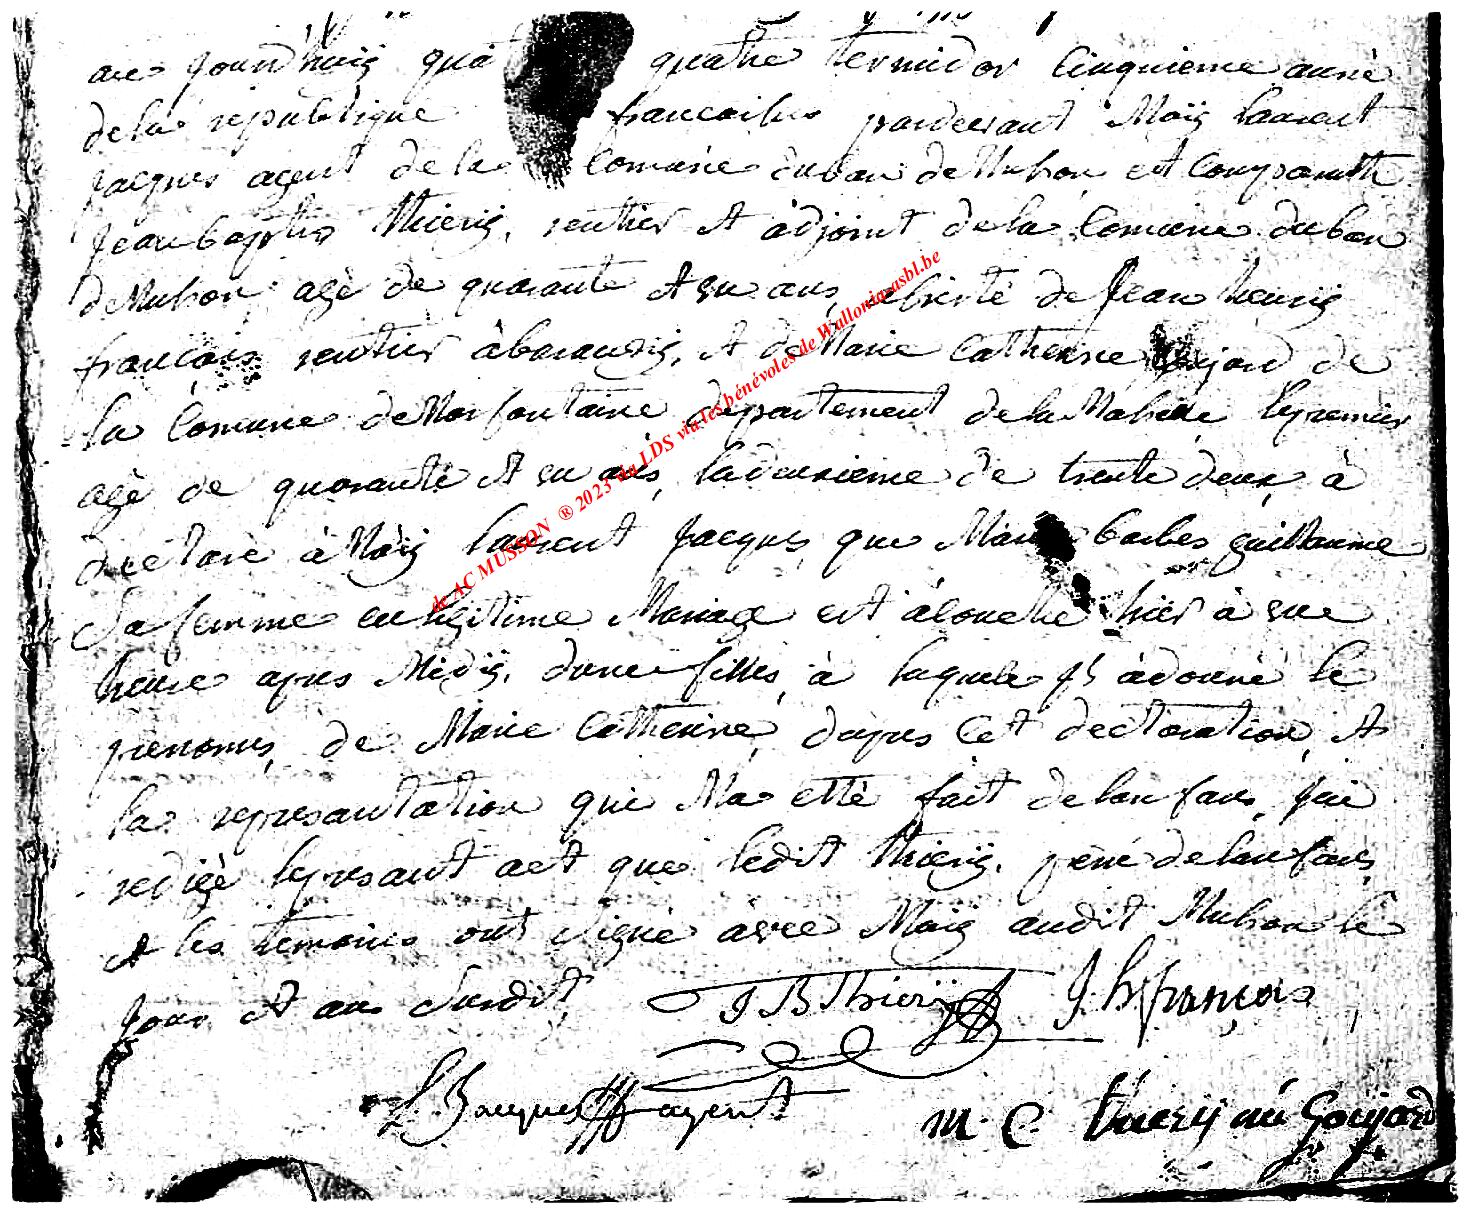 au jourd'huij quat quatre termidor Cinquieme année
de la republique francaisse pardeevant Moij laurent
jacques agent de la Comune du ban de Muhon est Comparrutte
jean baptis thierij, rentier et adjoint de la Comune du ban
de Muhon, agé de quarante et un ans, de jean henrij
francois rentier à baranzij, et de Marie Catherine Goujard de
la Comune de Morfontaine departement de la Moselle le premier
agé de quarante et un ans, la deusieme de trente deux, à
declaré à Moij laurent jacques, que Marie barbes guillaume
Sa femme en legitime Mariage est àcouché hier à une
heure apres Midij, d'une filles, à laquele jl àdonné le
prenomes, de Marie Catherine, dapres Cet declaration, et
la represantation qui M'a etté fait de lanfans, jai
redigé le presant act que ledit thierij, perre de lanfans,
et les temoins ont Signé avec Moij audit Muhon le
jour et ans Susdit,
J B Thierij J. h françois
L Jacques agent
M. C. thierij né Goujard
de AC MUSSON ® 2023 du LDS via les bénévoles de Walloniasasbl.be